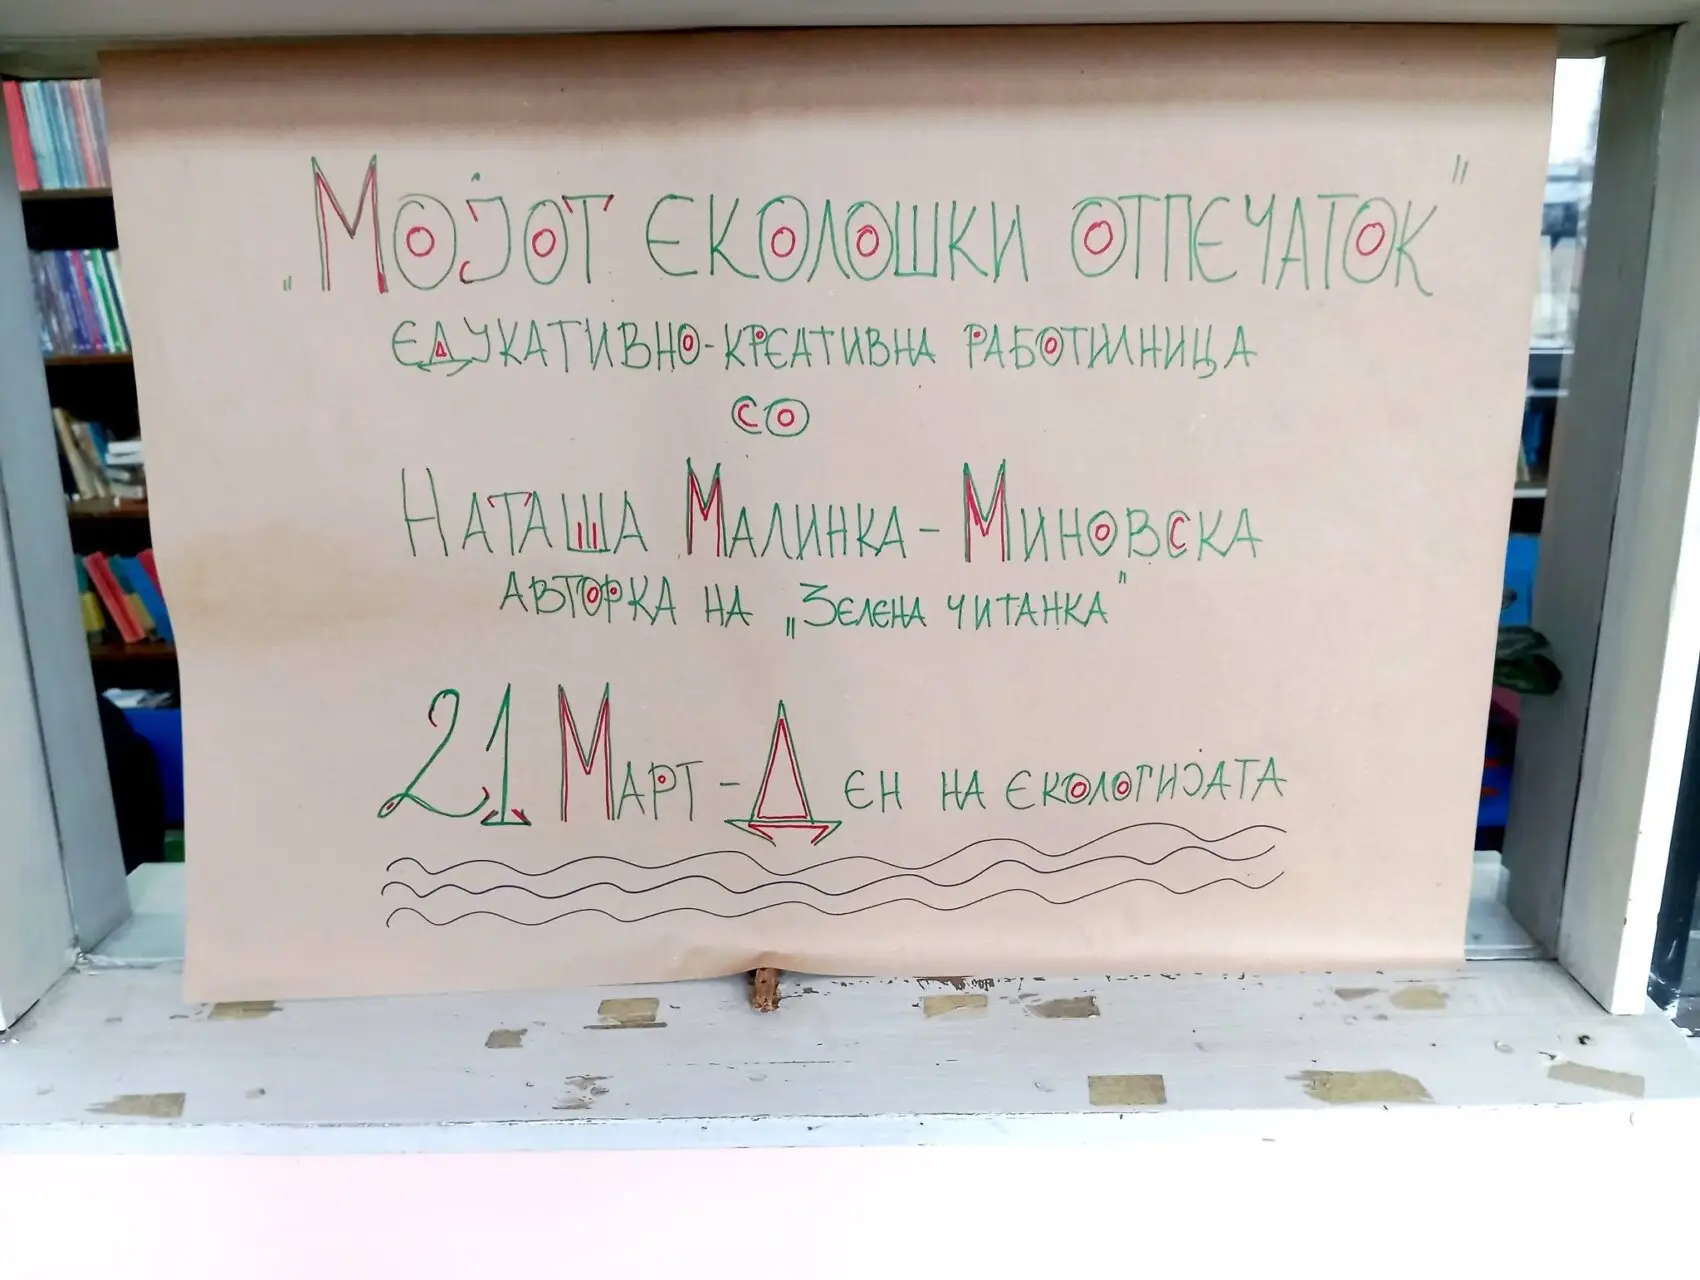 „Мојот еколошки отпечаток"
едукативно-креативна работилница
со
Наташа Малинка-Миновска
авторка на „Зелена читанка"
21 Март - Ден на екологијата